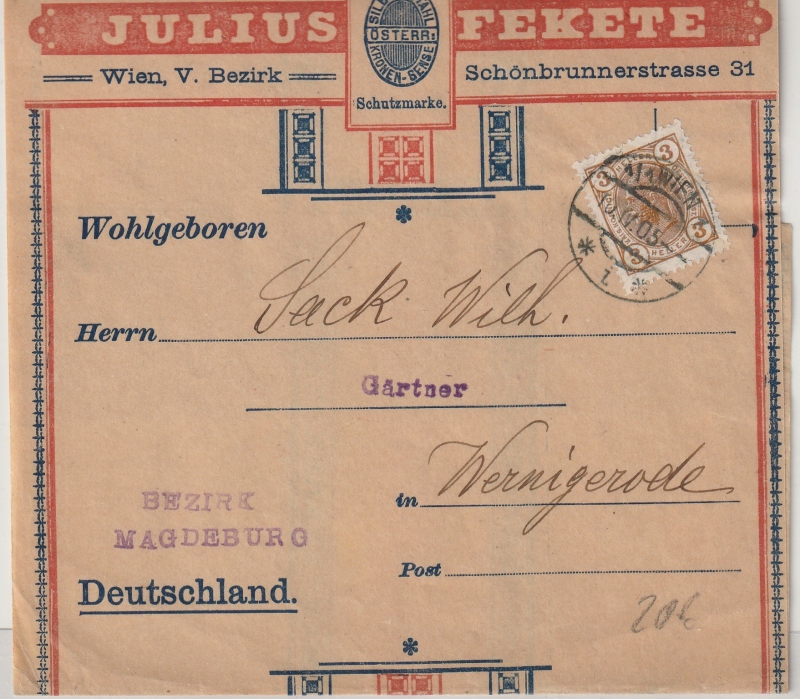 JULIUS FEKETE
ÖSTERR:
KRONEN-SENSE
Wien, V. Bezirk
Schönbrunnerstrasse 31
Schutzmarke.
3 3
3 3
HELLER
WIEN
05
1
Wohlgeboren
Herrn Sack Wilh.
Gärtner
in Wernigerode
BEZIRK
MAGDEBURG
Post
Deutschland.